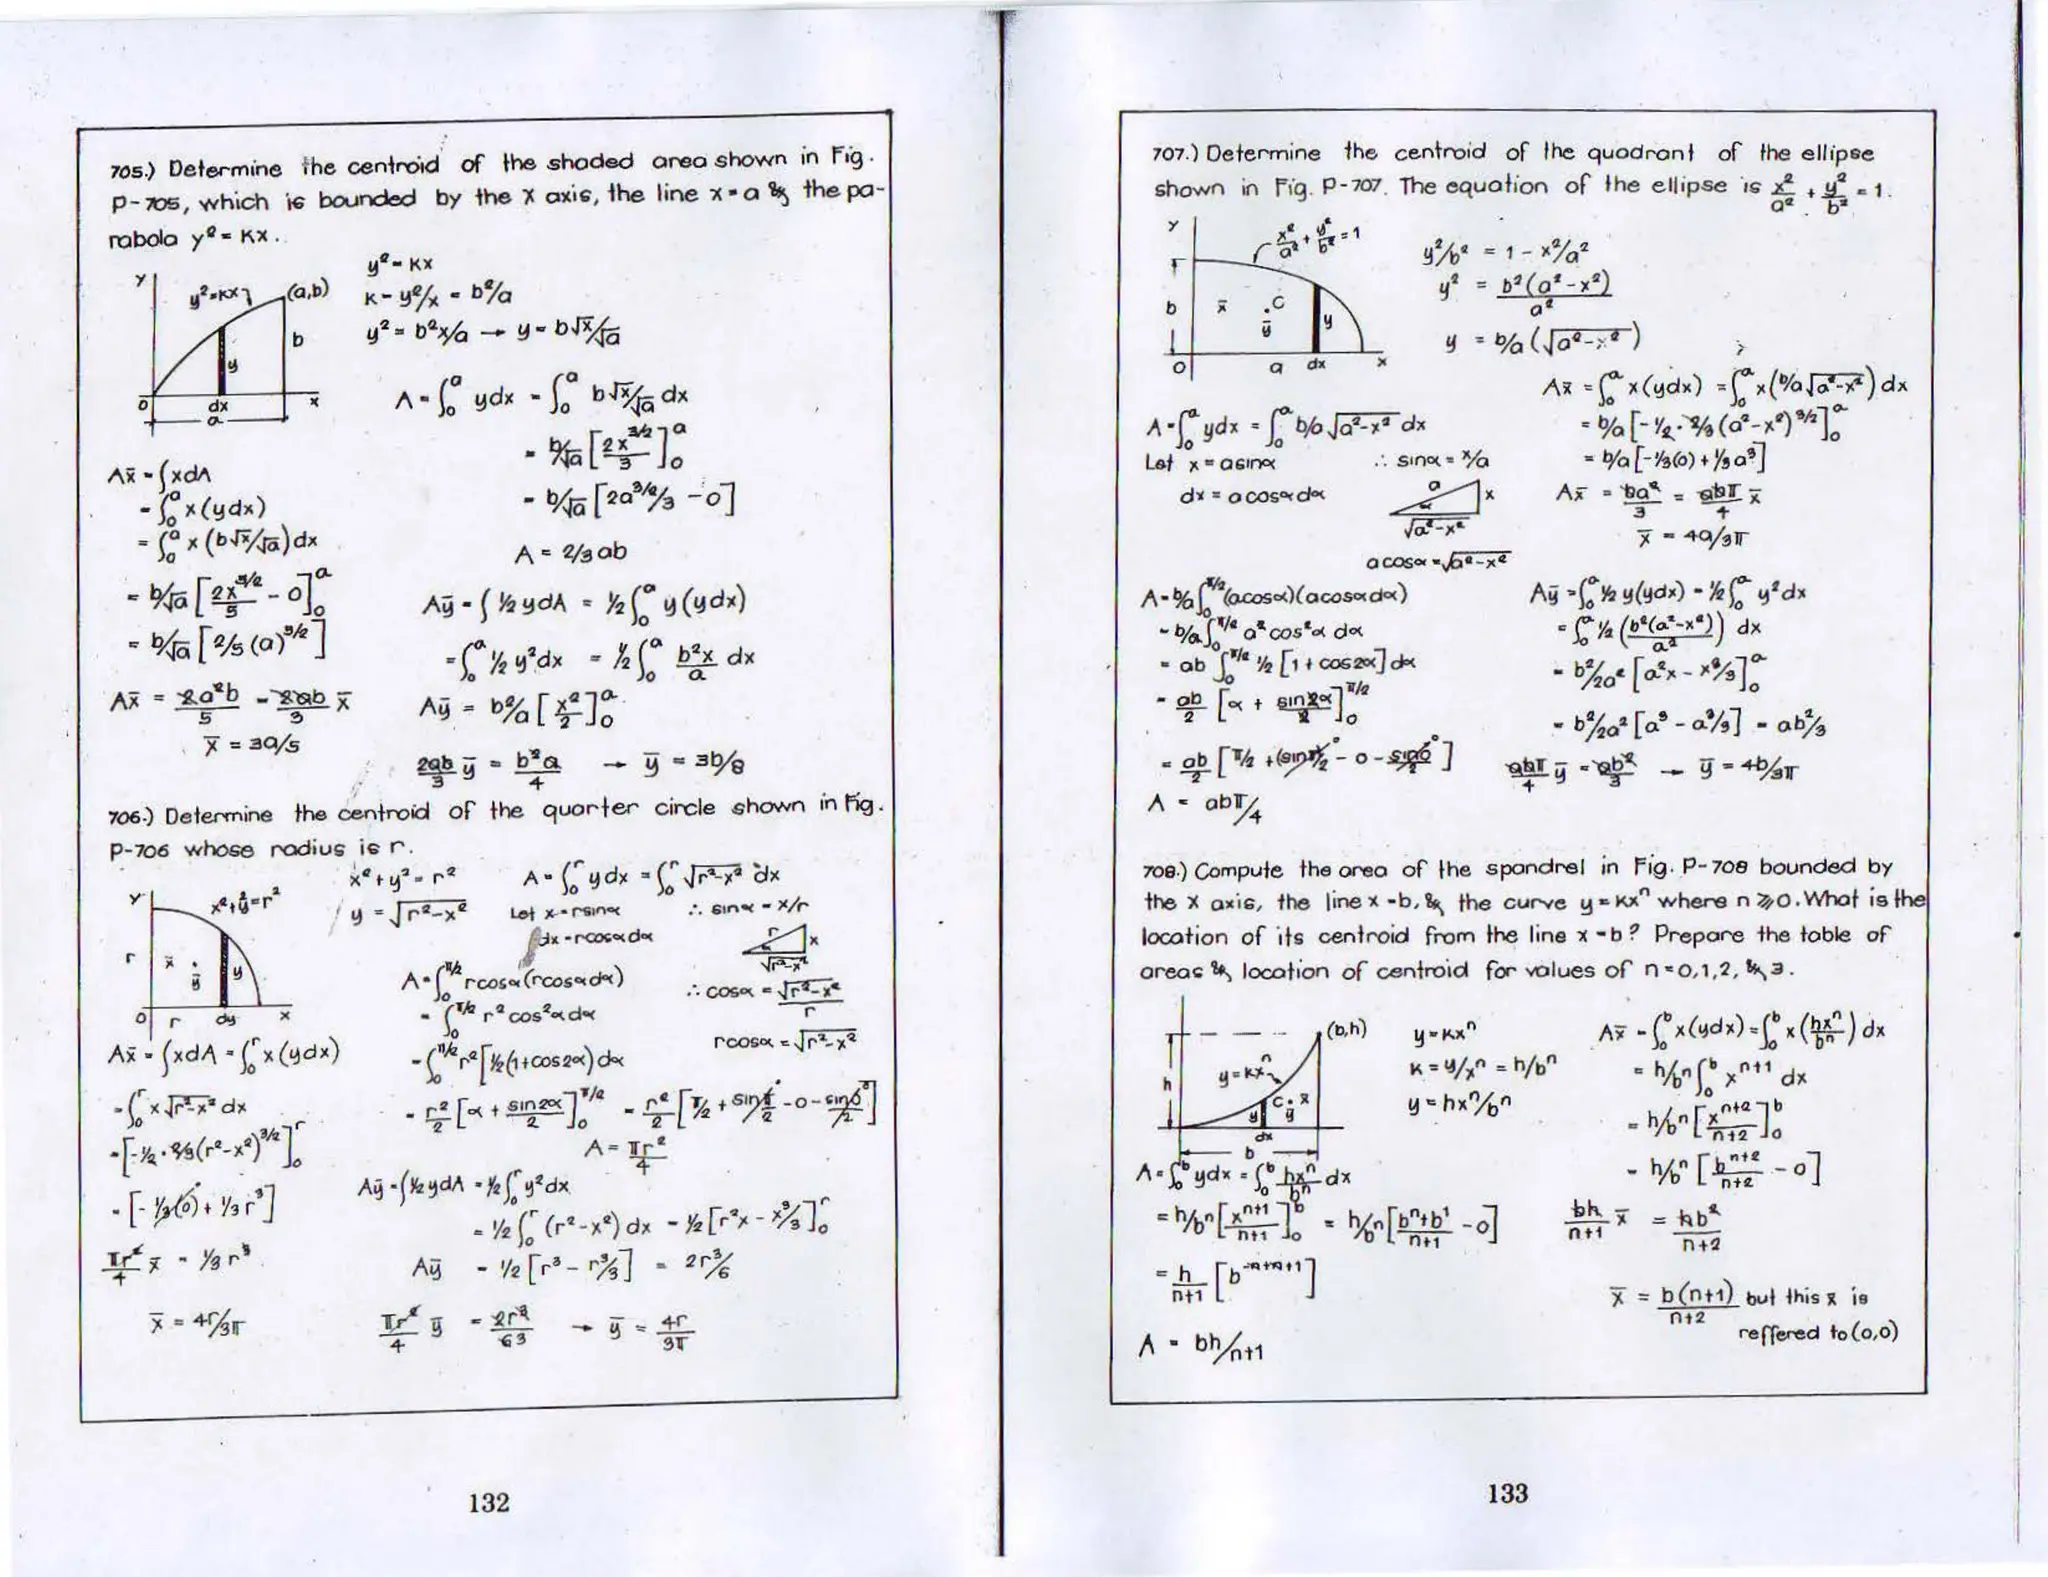 705.) Determine the centroid of the shaded area shown in Fig.
P-705, which is bounded by the X axis, the line x=a & the pa-
rabola y²=Kx.
y
y²=Kx
(a,b)
b
y
o
dx
x
a
y²=Kx
K=y²/x = b²/a
y²= b²x/a → y=b√x/√a
A=∫₀ᵃ ydx = ∫₀ᵃ b√x/√a dx
= b/√a [2x^3/2 / 3]₀ᵃ
= b/√a [2a^3/2 /3 - 0]
A = 2/3 ab
Ax̄ = ∫xdA
= ∫₀ᵃ x(ydx)
= ∫₀ᵃ x (b√x/√a)dx
= b/√a [2x^5/2 / 5 - 0]₀ᵃ
= b/√a [2/5 (a)^5/2]
Ax̄ = 2a²b/5 = 2ab/3 x̄
x̄ = 3a/5
Aȳ = ∫ ½ydA = ½∫₀ᵃ y(ydx)
= ∫₀ᵃ ½ y²dx = ½∫₀ᵃ b²x/a dx
Aȳ = b²/a [x²/2]₀ᵃ
2ab/3 ȳ = b²a/4 → ȳ = 3b/8
706.) Determine the centroid of the quarter circle shown in Fig.
P-706 whose radius is r.
y
x²+y²=r²
r
x̄
ȳ
y
o
r
dy
x
x²+y²=r²
y = √r²-x²
A=∫₀ʳ ydx = ∫₀ʳ √r²-x² dx
Let x=rsinα ∴ sinα = x/r
dx=rcosαdα
r
x
α
√r²-x²
A=∫₀^π/2 rcosα(rcosαdα)
∴ cosα = √r²-x² / r
= ∫₀^π/2 r²cos²αdα
rcosα = √r²-x²
= ∫₀^π/2 r²[½(1+cos2α)dα
= r²/2 [α + sin2α/2]₀^π/2 = r²/2 [π/2 + sinπ/2 - 0 - sin0/2]
A = πr²/4
Ax̄ = ∫xdA = ∫₀ʳ x(ydx)
= ∫₀ʳ x√r²-x² dx
= [-½·2/3(r²-x²)^3/2]₀ʳ
= [-1/3(0) + 1/3 r³]
πr²/4 x̄ = 1/3 r³
x̄ = 4r/3π
Aȳ = ∫½ydA = ½∫₀ʳ y²dx
= ½∫₀ʳ (r²-x²) dx = ½[r²x - x³/3]₀ʳ
Aȳ = ½[r³ - r³/3] = 2r³/6
πr²/4 ȳ = 2r³/63 → ȳ = 4r/3π
132
707.) Determine the centroid of the quadrant of the ellipse
shown in Fig. P-707. The equation of the ellipse is x²/a² + y²/b² = 1.
y
x²/a² + y²/b² = 1
b
x̄
.C
ȳ
y
o
a
dx
x
y²/b² = 1 - x²/a²
y² = b²(a²-x²)/a²
y = b/a (√a²-x²)
A=∫₀ᵃ ydx = ∫₀ᵃ b/a √a²-x² dx
Let x=asinα ∴ sinα = x/a
dx = acosαdα
a
x
α
√a²-x²
acosα = √a²-x²
A=b/a∫₀^π/2 (acosα)(acosαdα)
= b/a∫₀^π/2 a²cos²α dα
= ab ∫₀^π/2 ½ [1+cos2α]dα
= ab/2 [α + sin2α/2]₀^π/2
= ab/2 [π/2 + (sinπ/2 - 0 - sin0/2]
A = abπ/4
Ax̄ = ∫₀ᵃ x(ydx) = ∫₀ᵃ x(b/a√a²-x²)dx
= b/a [-½·2/3(a²-x²)^3/2]₀ᵃ
= b/a [-1/3(0) + 1/3 a³]
Ax̄ = ba²/3 = abπ/4 x̄
x̄ = 4a/3π
Aȳ = ∫₀ᵃ ½ y(ydx) = ½∫₀ᵃ y²dx
= ∫₀ᵃ ½ (b²(a²-x²)/a²) dx
= b²/2a² [a²x - x³/3]₀ᵃ
= b²/2a² [a³ - a³/3] = ab²/3
abπ/4 ȳ = ab²/3 → ȳ = 4b/3π
708.) Compute the area of the spandrel in Fig. P-708 bounded by
the X axis, the line x=b, & the curve y=Kxⁿ where n ≥ 0. What is the
location of its centroid from the line x=b? Prepare the table of
areas & location of centroid for values of n=0,1,2, & 3.
(b,h)
h
y=Kxⁿ
C. x̄
y
ȳ
dx
b
y=Kxⁿ
K=y/xⁿ = h/bⁿ
y=hxⁿ/bⁿ
A=∫₀ᵇ ydx = ∫₀ᵇ hxⁿ/bⁿ dx
= h/bⁿ[xⁿ⁺¹/n+1]₀ᵇ = h/bⁿ[bⁿ+b¹/n+1 - 0]
= h/n+1 [b⁻ⁿ⁺ⁿ⁺¹]
A = bh/n+1
Ax̄ = ∫₀ᵇ x(ydx) = ∫₀ᵇ x(hxⁿ/bⁿ)dx
= h/bⁿ∫₀ᵇ xⁿ⁺¹ dx
= h/bⁿ[xⁿ⁺²/n+2]₀ᵇ
= h/bⁿ[bⁿ⁺²/n+2 - 0]
bh/n+1 x̄ = hb²/n+2
x̄ = b(n+1)/n+2 but this x̄ is
reffered to (0,0)
133